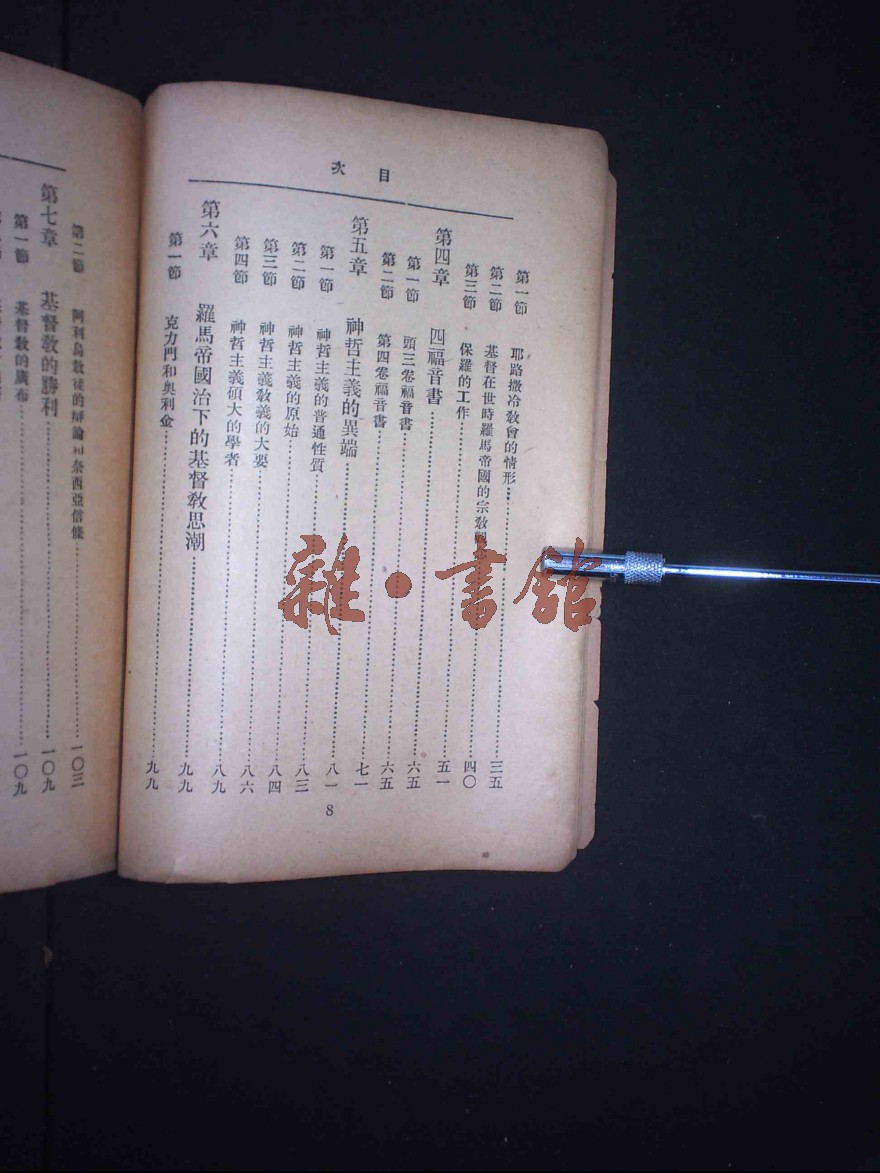 目次
第一節 耶路撒冷敎會的情形……三五
第二節 基督在世時羅馬帝國的宗敎……四〇
第三節 保羅的工作……五一
第四章 四福音書……六五
第一節 頭三卷福音書……六五
第二節 第四卷福音書……七一
第五章 神哲主義的異端……八一
第一節 神哲主義的普通性質……八三
第二節 神哲主義的原始……八四
第三節 神哲主義敎義的大要……八六
第四節 神哲主義碩大的學者……八九
第六章 羅馬帝國治下的基督敎思潮……九九
第一節 克力門和奥利金……九九
8
第二節 阿利烏敎徒的辯論和奈西亞信條……一〇三
第七章 基督敎的勝利……一〇九
第一節 基督敎的廣布……一〇九
雜·書館